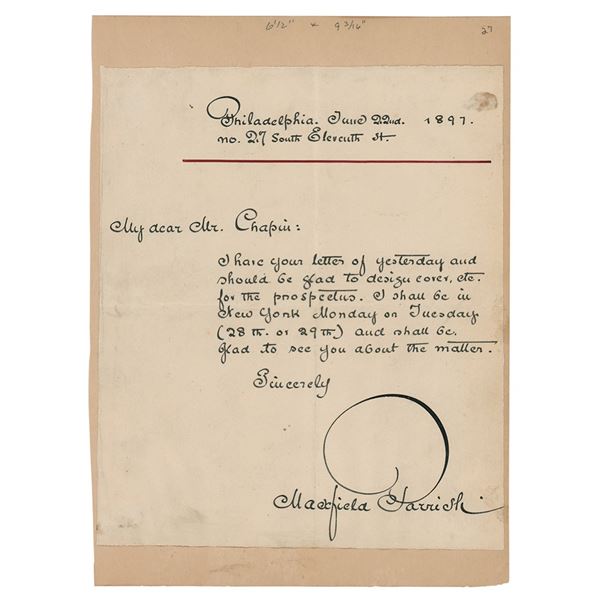 6 1/2" x 9 3/16"
27
Philadelphia. June 22nd. 1897.
no. 27 South Eleventh St.
My dear Mr. Chapin:
I have your letter of yesterday and
should be glad to design cover, etc.
for the prospectus. I shall be in
New York Monday or Tuesday
(28th. or 29th) and shall be
glad to see you about the matter.
Sincerely
Maxfield Parrish